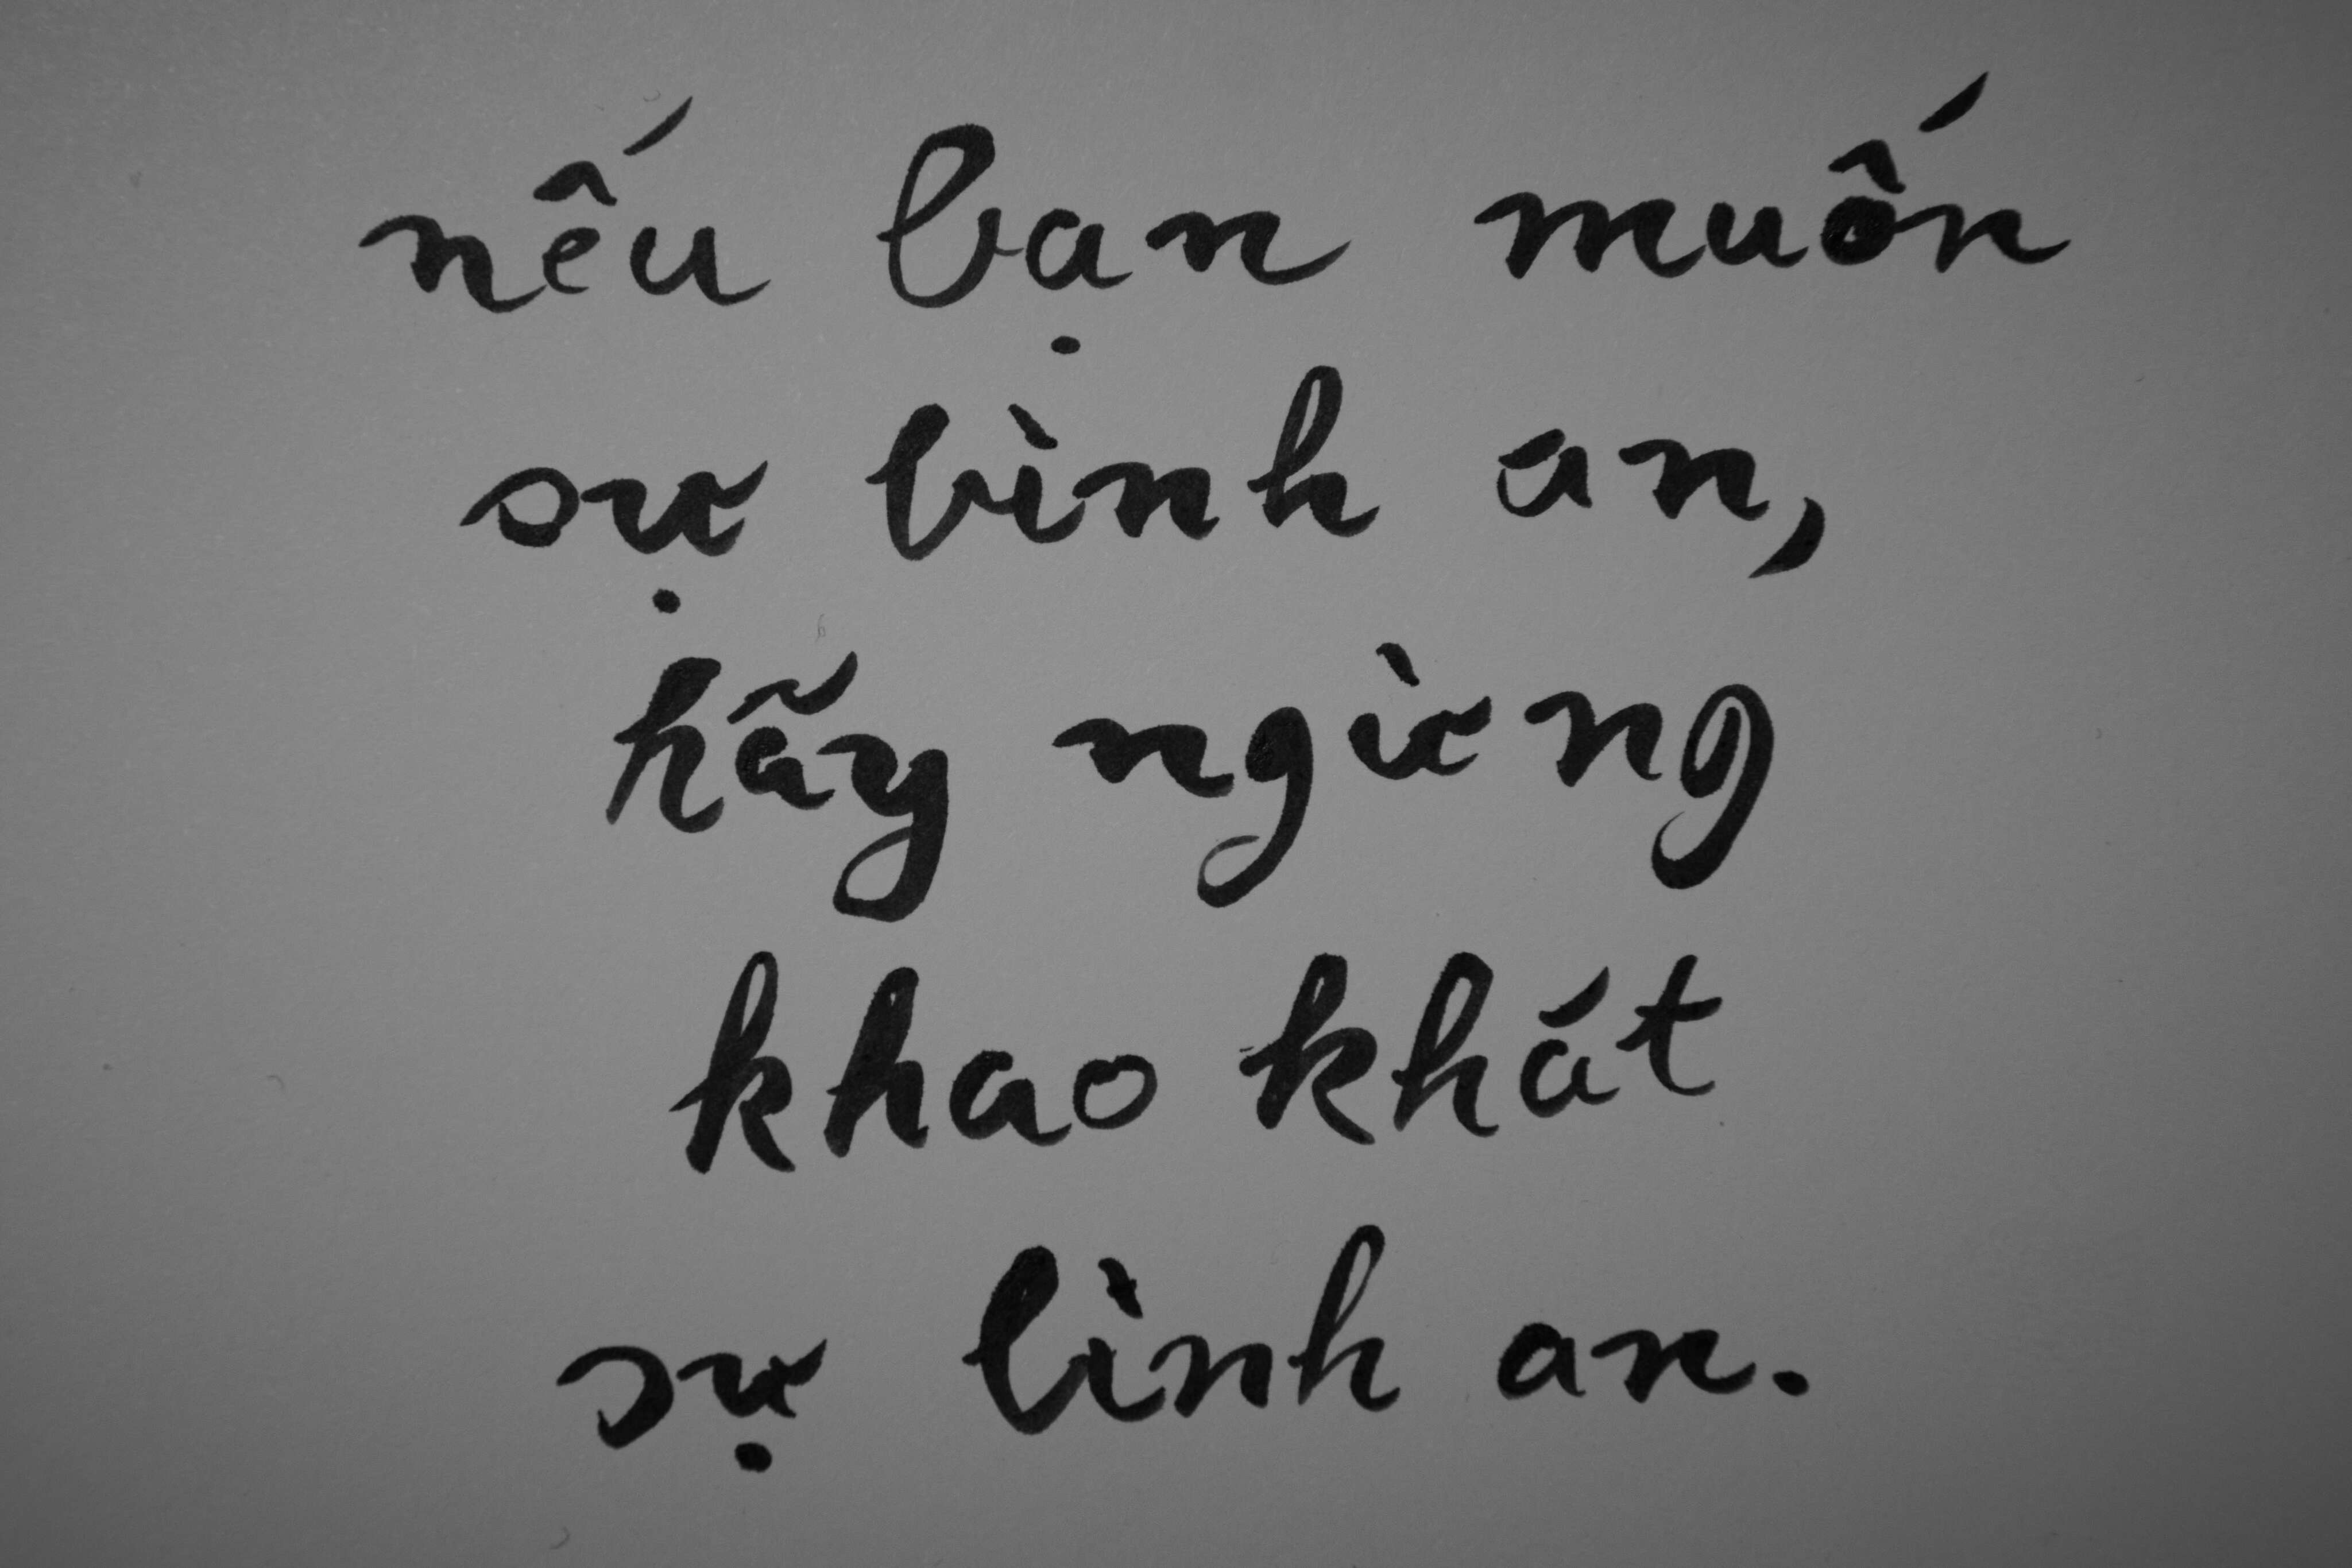 nếu bạn muốn
sự bình an,
hãy ngừng
khao khát
sự bình an.